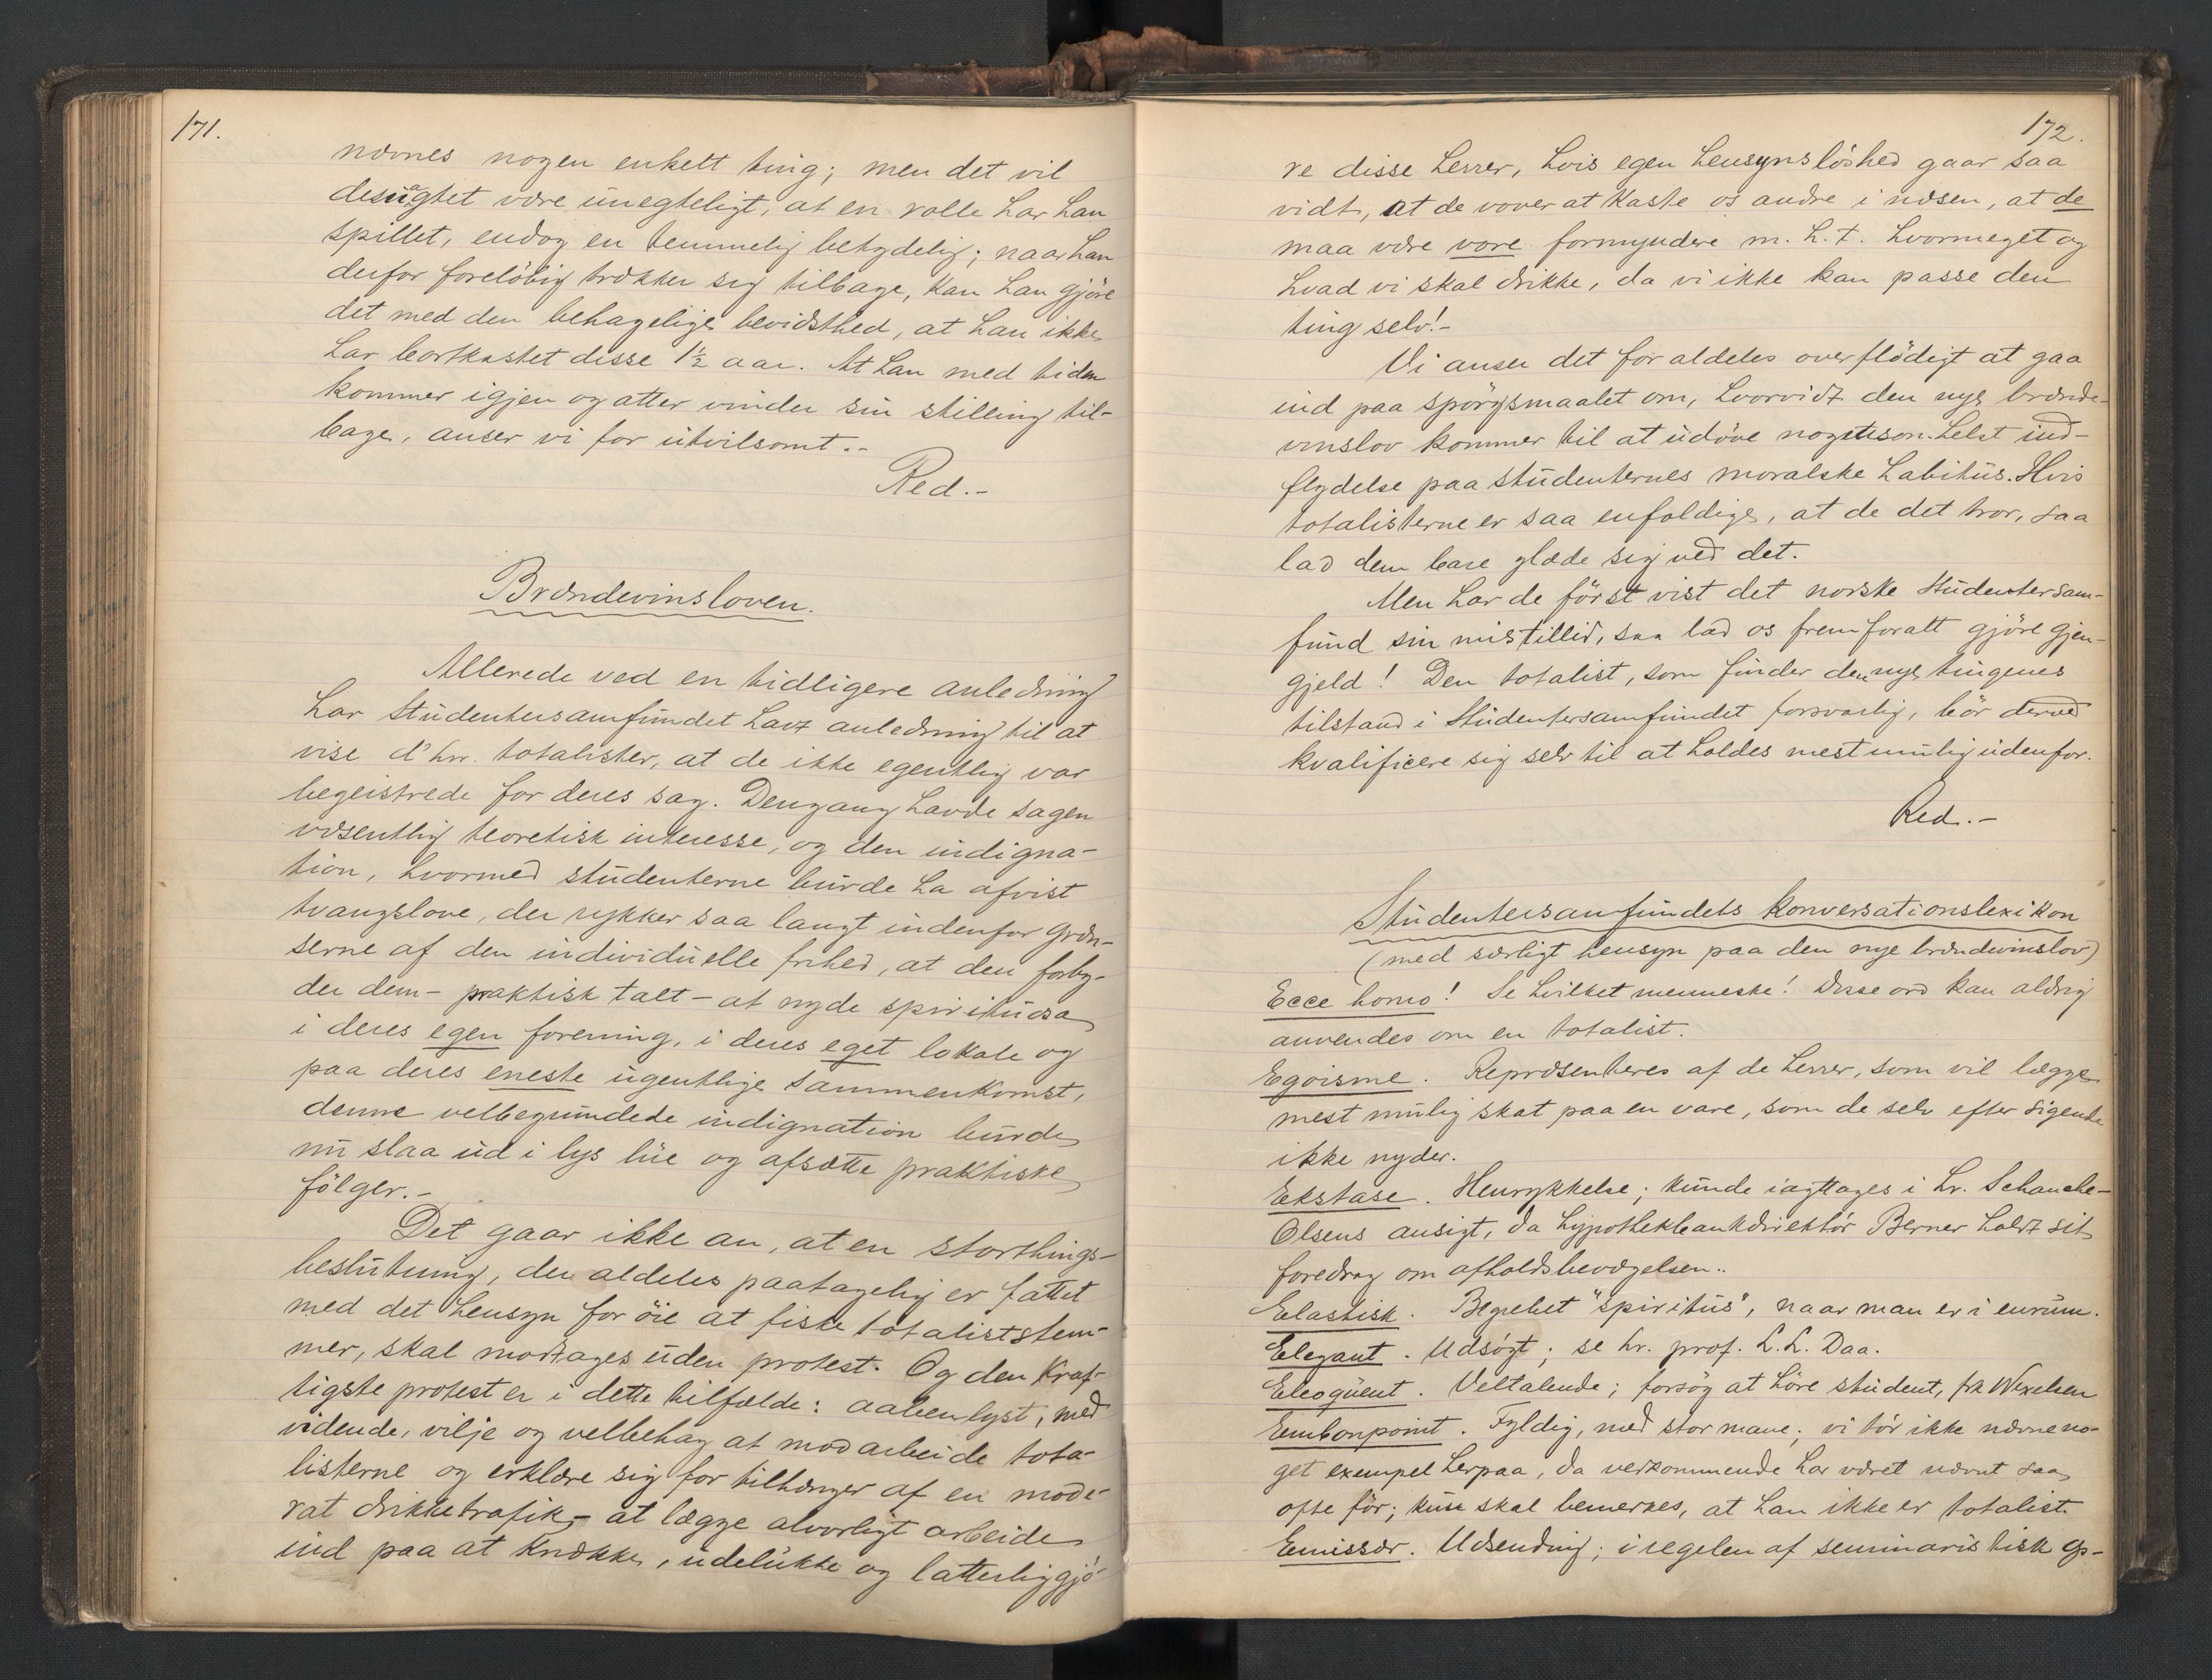 171.
nævnes nogen enkelt ting; men det vil
desuagtet være unegteligt, at en rolle har han
spillet, endog en temmelig betydelig; naar han
derfor foreløbig trækker sig tilbage, kan han gjøre
det med den behagelige bevidsthed, at han ikke
har bortkastet disse 1½ aar. At han med tiden
kommer igjen og atter vinder sin stilling til-
bage, anser vi for utvilsomt.-
Red.-
Brændevinsloven.
Allerede ved en tidligere anledning
har Studentersamfundet havt anledning til at
vise d'hrr. totalister, at de ikke egentlig var
begeistrede for deres sag. Dengang havde sagen
væsentlig teoretisk interesse, og den indigna-
tion, hvormed studenterne burde ha afvist
tvangslove, der rykker saa langt indenfor græn-
serne af den individuelle frihed, at den forby-
der dem - praktisk talt - at nyde spirituosa
i deres egen forening, i deres eget lokale og
paa deres eneste ugentlige sammenkomst,
denne velbegrundede indignation burde
nu slaa ud i lys lue og afsætte praktiske
følger.-
Det gaar ikke an, at en storthings-
beslutning, der aldeles paatagelig er fattet
med det hensyn for øie at fiske totaliststem-
mer, skal modtages uden protest. Og den kraf-
tigste protest er i dette tilfælde: aabenlyst, med
vidende, vilje og velbehag at modarbeide tota-
listerne og erklære sig for tilhænger af en mode-
rat drikketrafik, - at lægge alvorligt arbeide
ind paa at knække, udelukke og latterliggjø-
172.
re disse herrer, hvis egen hensynsløshed gaar saa
vidt, at de vover at kaste os andre i næsen, at de
maa være vore formyndere m. h. t. hvormeget og
hvad vi skal drikke, da vi ikke kan passe den
ting selv!-
Vi anser det for aldeles overflødigt at gaa
ind paa spørgsmaalet om, hvorvidt den nye brænde-
vinslov kommer til at udøve nogetsomhelst ind-
flydelse paa studenternes moralske habitus. Hvis
totalisterne er saa enfoldige, at de det tror, saa
lad dem bare glæde sig ved det.
Men har de først vist det norske Studentersam-
fund sin mistillid, saa lad os fremforalt gjøre gjen-
gjeld! Den totalist, som finder den nye tingenes
tilstand i Studentersamfundet forsvarlig, bør derved
kvalificere sig selv til at holdes mest mulig udenfor.
Red.-
Studentersamfundets konversationslexikon
(med særligt hensyn paa den nye brændevinslov)
Ecce homo! Se hvilket menneske! Disse ord kan aldrig
anvendes om en totalist.
Egoisme. Repræsenteres af de herrer, som vil lægge
mest mulig skat paa en vare, som de selv efter sigende
ikke nyder.
Ekstase. Henrykkelse; kunde iagttages i hr. Schanche-
Olsens ansigt, da hypothekbankdirektør Berner holdt sit
foredrag om afholdsbevægelsen..
Elastisk. Begrebet "spiritus", naar man er i eurum.
Elegant. Udsøgt; se hr. prof. L. L. Daa.
Eleoquent. Veltalende; forsøg at høre student, frk Wexelsen
Embonpoint. Fyldig, med stor mave; vi tør ikke nævne no-
get exempel herpaa, da vedkommende har været nævnt saa
ofte før; kun skal bemerkes, at han ikke er totalist.
Emissær. Udsending; i regelen af seminaristisk op-